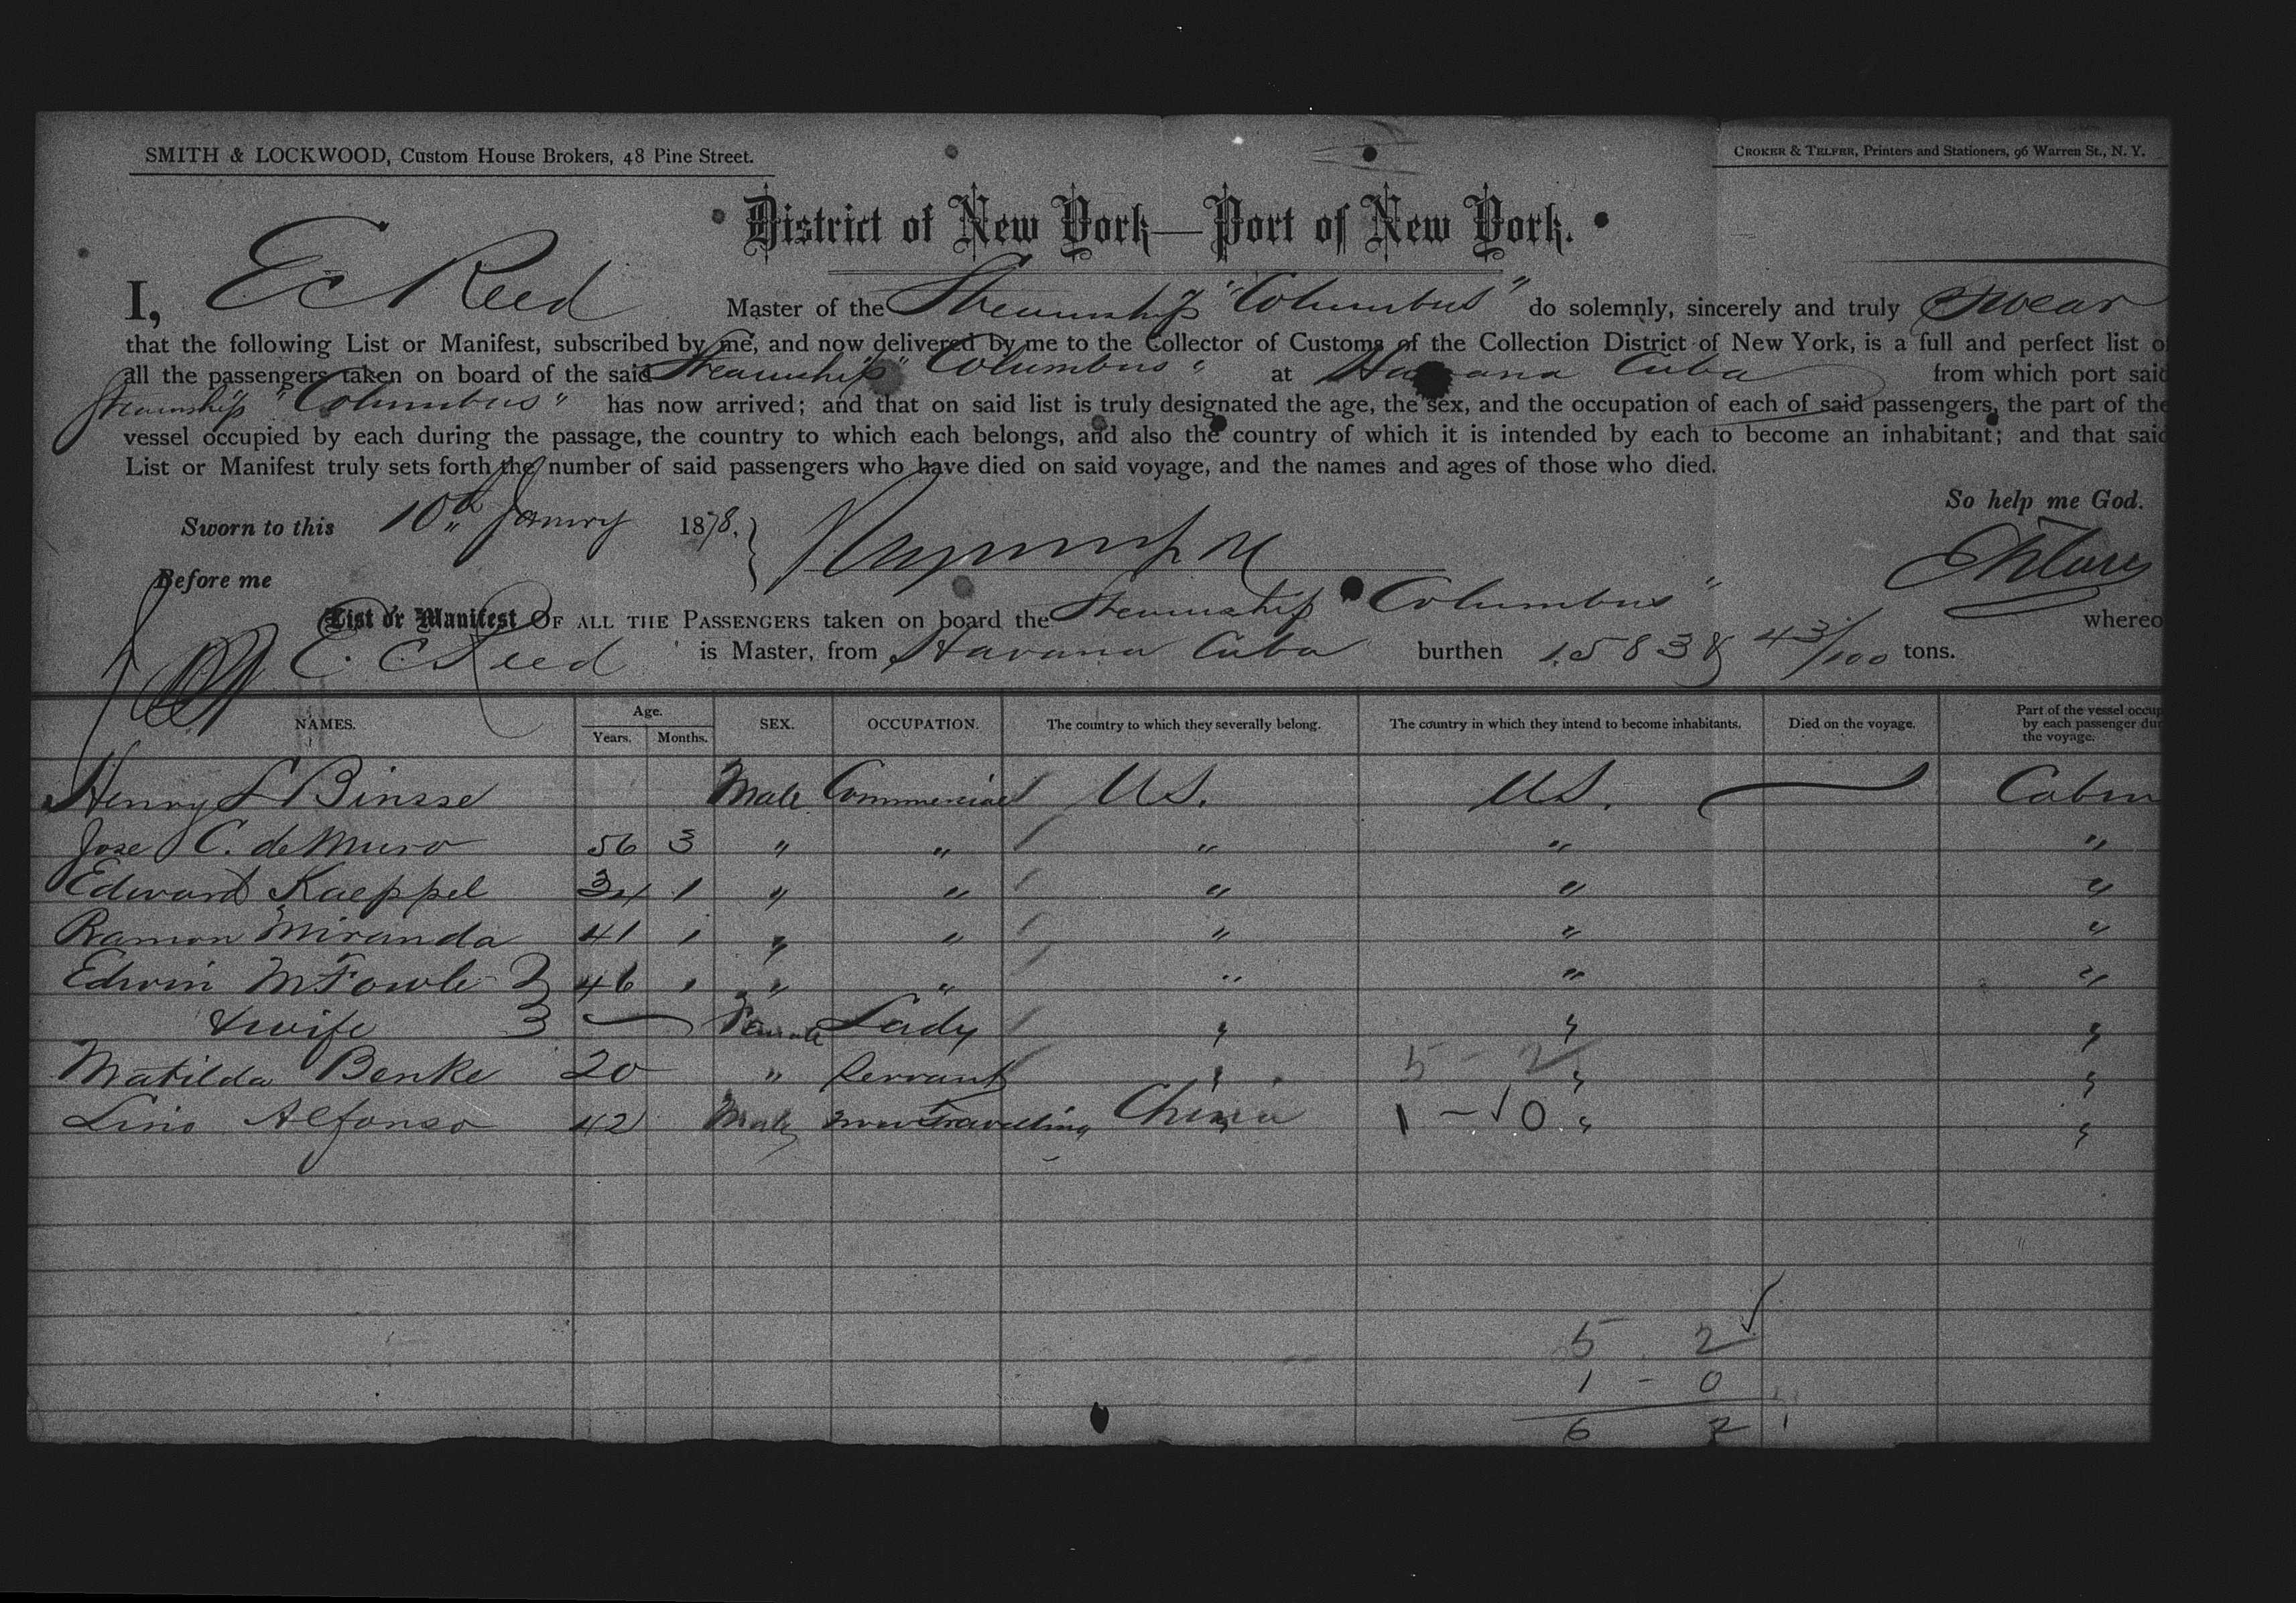 SMITH & LOCKWOOD, Custom House Brokers, 48 Pine Street.
CROKER & TELFER, Printers and Stationers, 96 Warren St., N. Y.
District of New York—Port of New York.
I, E C Reed Master of the Steamship "Columbus" do solemnly, sincerely and truly Swear
that the following List or Manifest, subscribed by me, and now delivered by me to the Collector of Customs of the Collection District of New York, is a full and perfect list o
all the passengers taken on board of the said Steamship "Columbus" at Havana Cuba from which port said
Steamship "Columbus" has now arrived; and that on said list is truly designated the age, the sex, and the occupation of each of said passengers, the part of the
vessel occupied by each during the passage, the country to which each belongs, and also the country of which it is intended by each to become an inhabitant; and that said
List or Manifest truly sets forth the number of said passengers who have died on said voyage, and the names and ages of those who died.
So help me God.
Sworn to this 10th January 1878.
Before me
List or Manifest OF ALL THE PASSENGERS taken on board the Steamship "Columbus" whereo
E. C Reed is Master, from Havana Cuba burthen 1583 & 43/100 tons.
NAMES. Age. Years. Months. SEX. OCCUPATION. The country to which they severally belong. The country in which they intend to become inhabitants. Died on the voyage. Part of the vessel occup by each passenger dur the voyage.
Henry L Binsse Male Commercial U S. U S. Cabin
Jose C. de Muro 56 3 " " " " "
Edward Kaeppel 34 1 " " " " "
Ramon Miranda 41 " " " " "
Edwin M Fowle 2 46 " " " " "
& wife 3 Female Lady " " "
Matilda Benke 20 " Servant " 5 - 2 " "
Lino Alfonso 42 Male Travelling China 1 - 0 " "
5 2
1 - 0
6 2